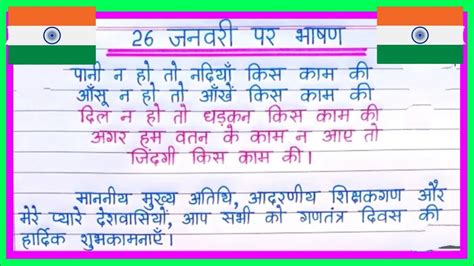 26 जनवरी पर भाषण
पानी न हो तो नदियाँ किस काम की
आँसू न हो तो आँखें किस काम की
दिल न हो तो धड़कन किस काम की
अगर हम वतन के काम न आए तो
जिंदगी किस काम की।
माननीय मुख्य अतिथि, आदरणीय शिक्षकगण और
मेरे प्यारे देशवासियो, आप सभी को गणतंत्र दिवस की
हार्दिक शुभकामनाएँ।